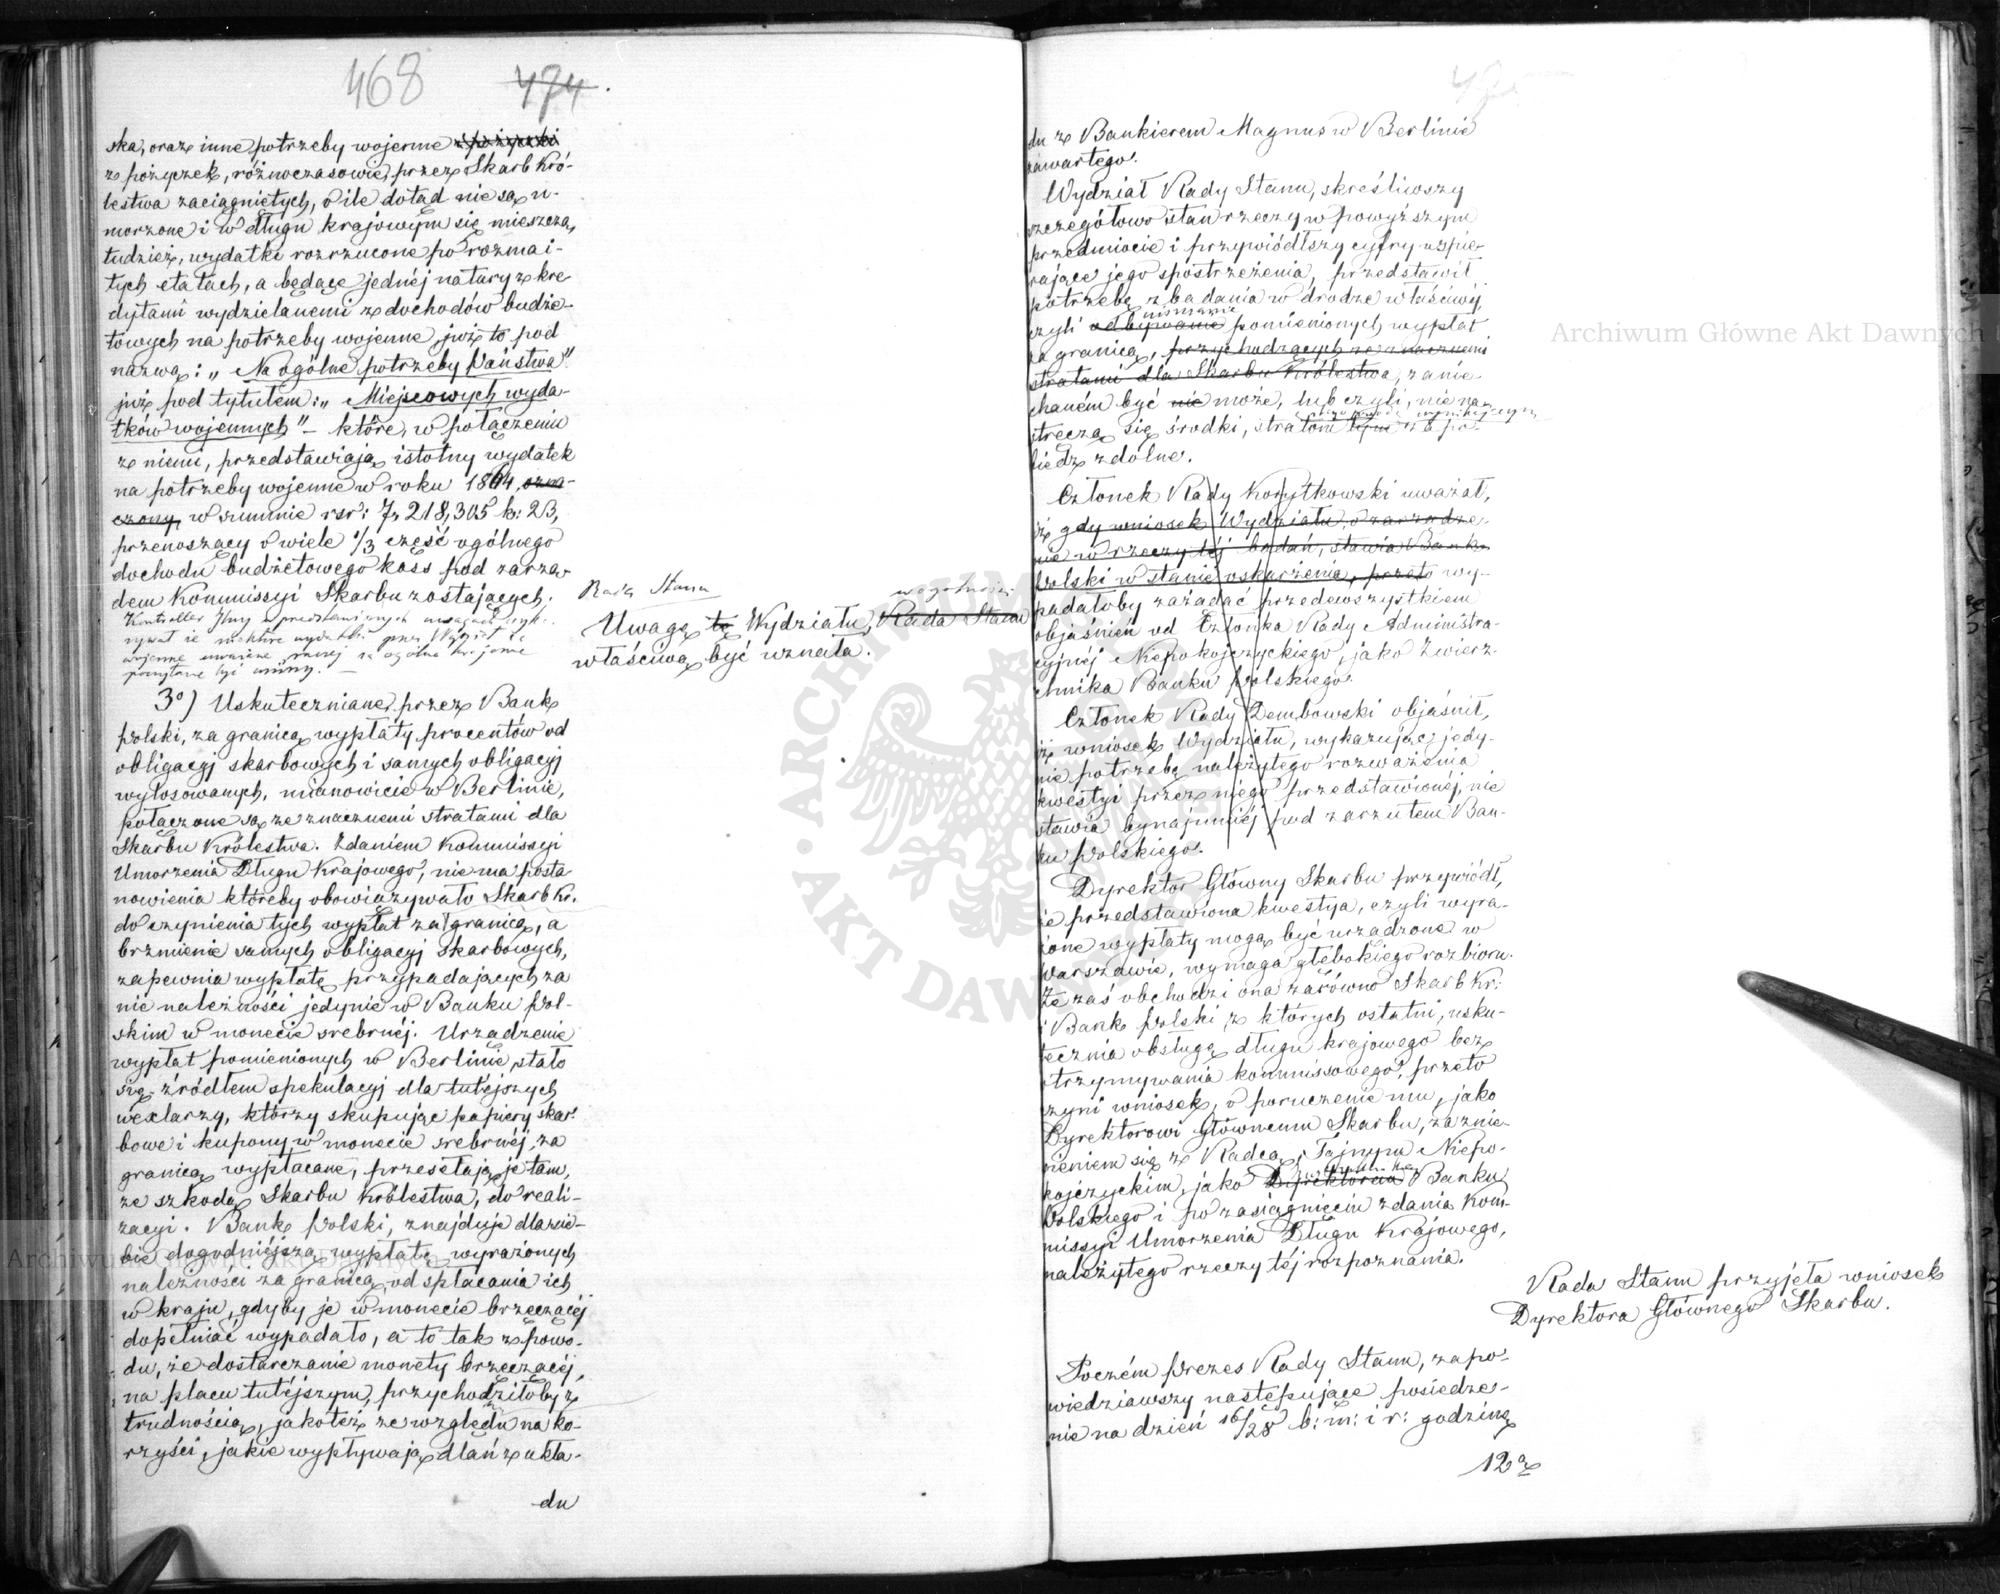 468 474.
ska, oraz inne potrzeby wojenne z pożyczki
z pożyczek, różnoczasowie, przez Skarb Kró-
lestwa zaciągniętych, o ile dotąd nie są u-
morzone i w długu krajowym się mieszczą,
tudzież, wydatki rozrzucone po rozmai-
tych etatach, a będące jednéj natury z kre
dytami wydzielanemi z dochodów budże-
towych na potrzeby wojenne, już to pod
nazwą: „Na ogólne potrzeby Państwa"
już pod tytułem: „Miejscowych wyda-
tków wojennych" – które, w połączeniu
z niemi, przedstawiają istotny wydatek
na potrzeby wojenne w roku 1864, ozna-
czony, w summie rsr: 7,218,305 k: 23,
przenoszący o wiele 1/3 część ogólnego
dochodu budżetowego kass pod zarzą-
dem Kommissyi Skarbu zostających.
Kontroller Jlny w przedstawionych uwagach
wojenne uważane, raczej za ogólne krajowe
poczytane być winny. –
Rada Stanu
Uwagę tę Wydziału, Rada Stanu
właściwą być uznała.
3o) Uskuteczniane, przez Bank
Polski, za granicą wypłaty procentów od
obligacyj skarbowych i samych obligacyj
wylosowanych, mianowicie w Berlinie,
połączone są ze znacznemi stratami dla
Skarbu Królestwa. Zdaniem Kommissyi
Umorzenia Długu Krajowego, nie ma posta
nowienia któreby obowiązywało Skarb Kr.
do czynienia tych wypłat za granicą, a
brzmienie samych obligacyj Skarbowych,
zapewnia wypłatę przypadających za
nie należności jedynie w Banku Pol-
skim w monecie srebrnéj. Urządzenie
wypłat pomienionych w Berlinie, stało
się źródłem spekulacyj dla tutéjszych
wexlarzy, którzy skupując papiery skar-
bowe i kupony w monecie srebrnéj, za
granicą wypłacane, przesełają je tam,
ze szkodą Skarbu Królestwa, do reali-
zacyi. Bank Polski, znajduje dla sie-
bie dogodniéjszą wypłatę wyrażonych
należności za granicą, od spłacania ich
w kraju, gdyby je w monecie brzęczącéj
dopełniać wypadało, a to tak z powo-
du, że dostarczanie monety brzęczącéj,
na placu tutéjszym, przychodziłoby z
trudnością, jakotéż ze względu na ko-
rzyści, jakie wypływają dlań z ukła-
du
du z Bankierem Magnus w Berlinie
zawartego.
Wydział Rady Stanu, skreśliwszy
szczegółowo stan rzeczy w powyższym
przedmiocie i przywiódłszy cyfry wspie-
rające jego spostrzeżenia, przedstawił
potrzebę zbadania w drodze właściwéj,
czyli odbywanie pomienionych wypłat
za granicą, przychodzących ze znacznemi
stratami dla Skarbu Królestwa, zanie-
chaném być nie może, lub czyli, nie na-
stręczą się środki, stratom tym zapo-
biedz zdolne.
Członek Rady Korytkowski uważał,
iż gdy wniosek Wydziału, o zarządze-
nie w rzeczy téj badań, stawia Bank
Polski w stanie oskarżenia, przeto wy-
padałoby zażądać przedewszystkiem
objaśnień od Członka Rady Administra-
cyjnéj Niepokojczyckiego, jako Zwierz-
chnika Banku Polskiego.
Członek Rady Dembowski objaśnił,
iż wniosek Wydziału, wykazując jedy-
nie potrzebę należytego rozważenia
kwestyi przez niego przedstawionéj, nie
stawia bynajmniéj pod zarzutem Ban-
ku Polskiego.
Dyrektor Główny Skarbu przywiódł,
że przedstawiona kwestya, czyli wyra-
żone wypłaty mogą być urządzone w
Warszawie, wymaga głębokiego rozbioru.
Że zaś obchodzi ona zarówno Skarb Kr:
i Bank Polski, z których ostatni, usku-
tecznia obsługę długu krajowego bez
otrzymywania kommissowego, przeto
czyni wniosek, o poruczenie mu, jako
Dyrektorowi Głównemu Skarbu, za znie-
sieniem się z Radcą Tajnym Niepo-
kojczyckim, jako Dyrektorem Banku
Polskiego i po zasiągnięciu zdania Kom-
missyi Umorzenia Długu Krajowego,
należytego rzeczy téj rozpoznania.
Rada Stanu przyjęła wniosek
Dyrektora Głównego Skarbu.
Poczém Prezes Rady Stanu, zapo-
wiedziawszy następujące posiedze-
nie na dzień 16/28 b: m: i r: godzinę
12ą
ARCHIWUM GŁÓWNE AKT DAWNYCH
Archiwum Główne Akt Dawnych
Archiwum Główne Akt Dawnych